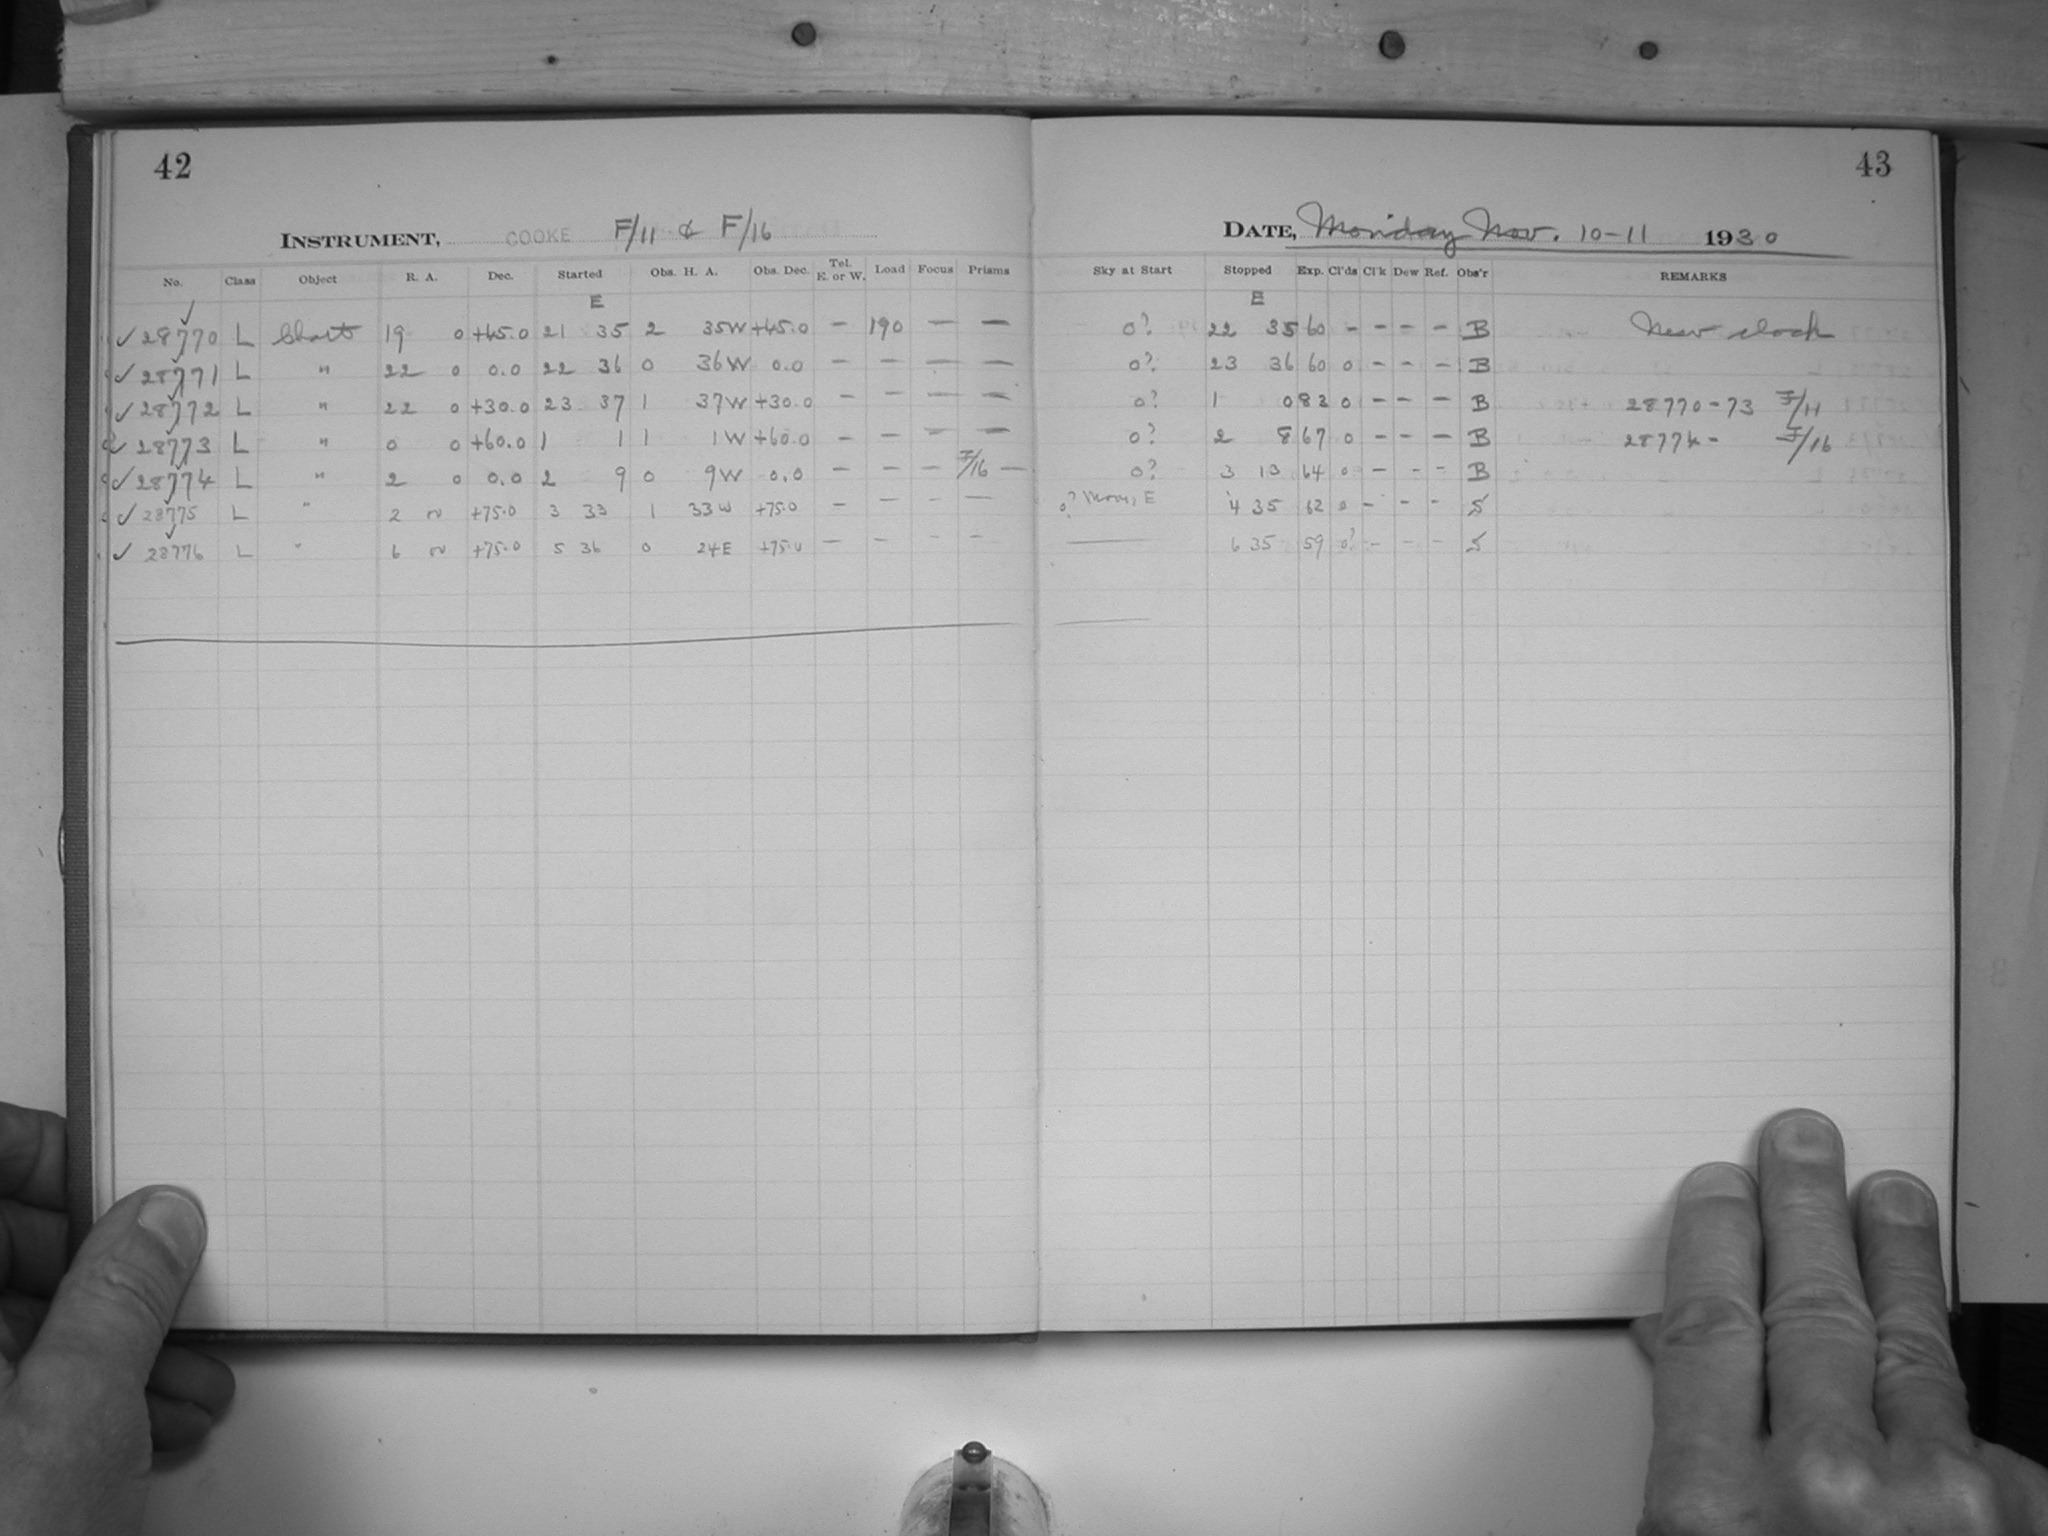 42
INSTRUMENT, COOKE F/11 & F/16
No. Class Object R. A. Dec. Started Obs. H. A. Obs. Dec. Tel. E. or W. Load Focus Prisms
E
✓ 28770 L Chart 19 0 +45.0 21 35 2 35W +45.0 – 190 – –
✓ 28771 L " 22 0 0.0 22 36 0 36W 0.0 – – – –
✓ 28772 L " 22 0 +30.0 23 37 1 37W +30.0 – – – –
✓ 28773 L " 0 0 +60.0 1 1 1 1W +60.0 – – – –
✓ 28774 L " 2 0 0.0 2 9 0 9W 0.0 – – – F/16 –
✓ 28775 L " 2 ~ +75.0 3 33 1 33W +75.0 – – – –
✓ 28776 L " 6 ~ +75.0 5 36 0 24E +75.0 – – – –
43
DATE, Monday Nov. 10-11 1930
Sky at Start Stopped Exp. Cl'ds Cl'k Dew Ref. Obs'r REMARKS
E
0? 22 35 60 – – – – B New clock
0? 23 36 60 0 – – – B
0? 1 0 83 0 – – – B 28770-73 F/11
0? 2 8 67 0 – – – B 28774- F/16
0? 3 13 64 0 – – – B
0? Moon, E 4 35 62 0 – – – S
— 6 35 59 0? – – – S